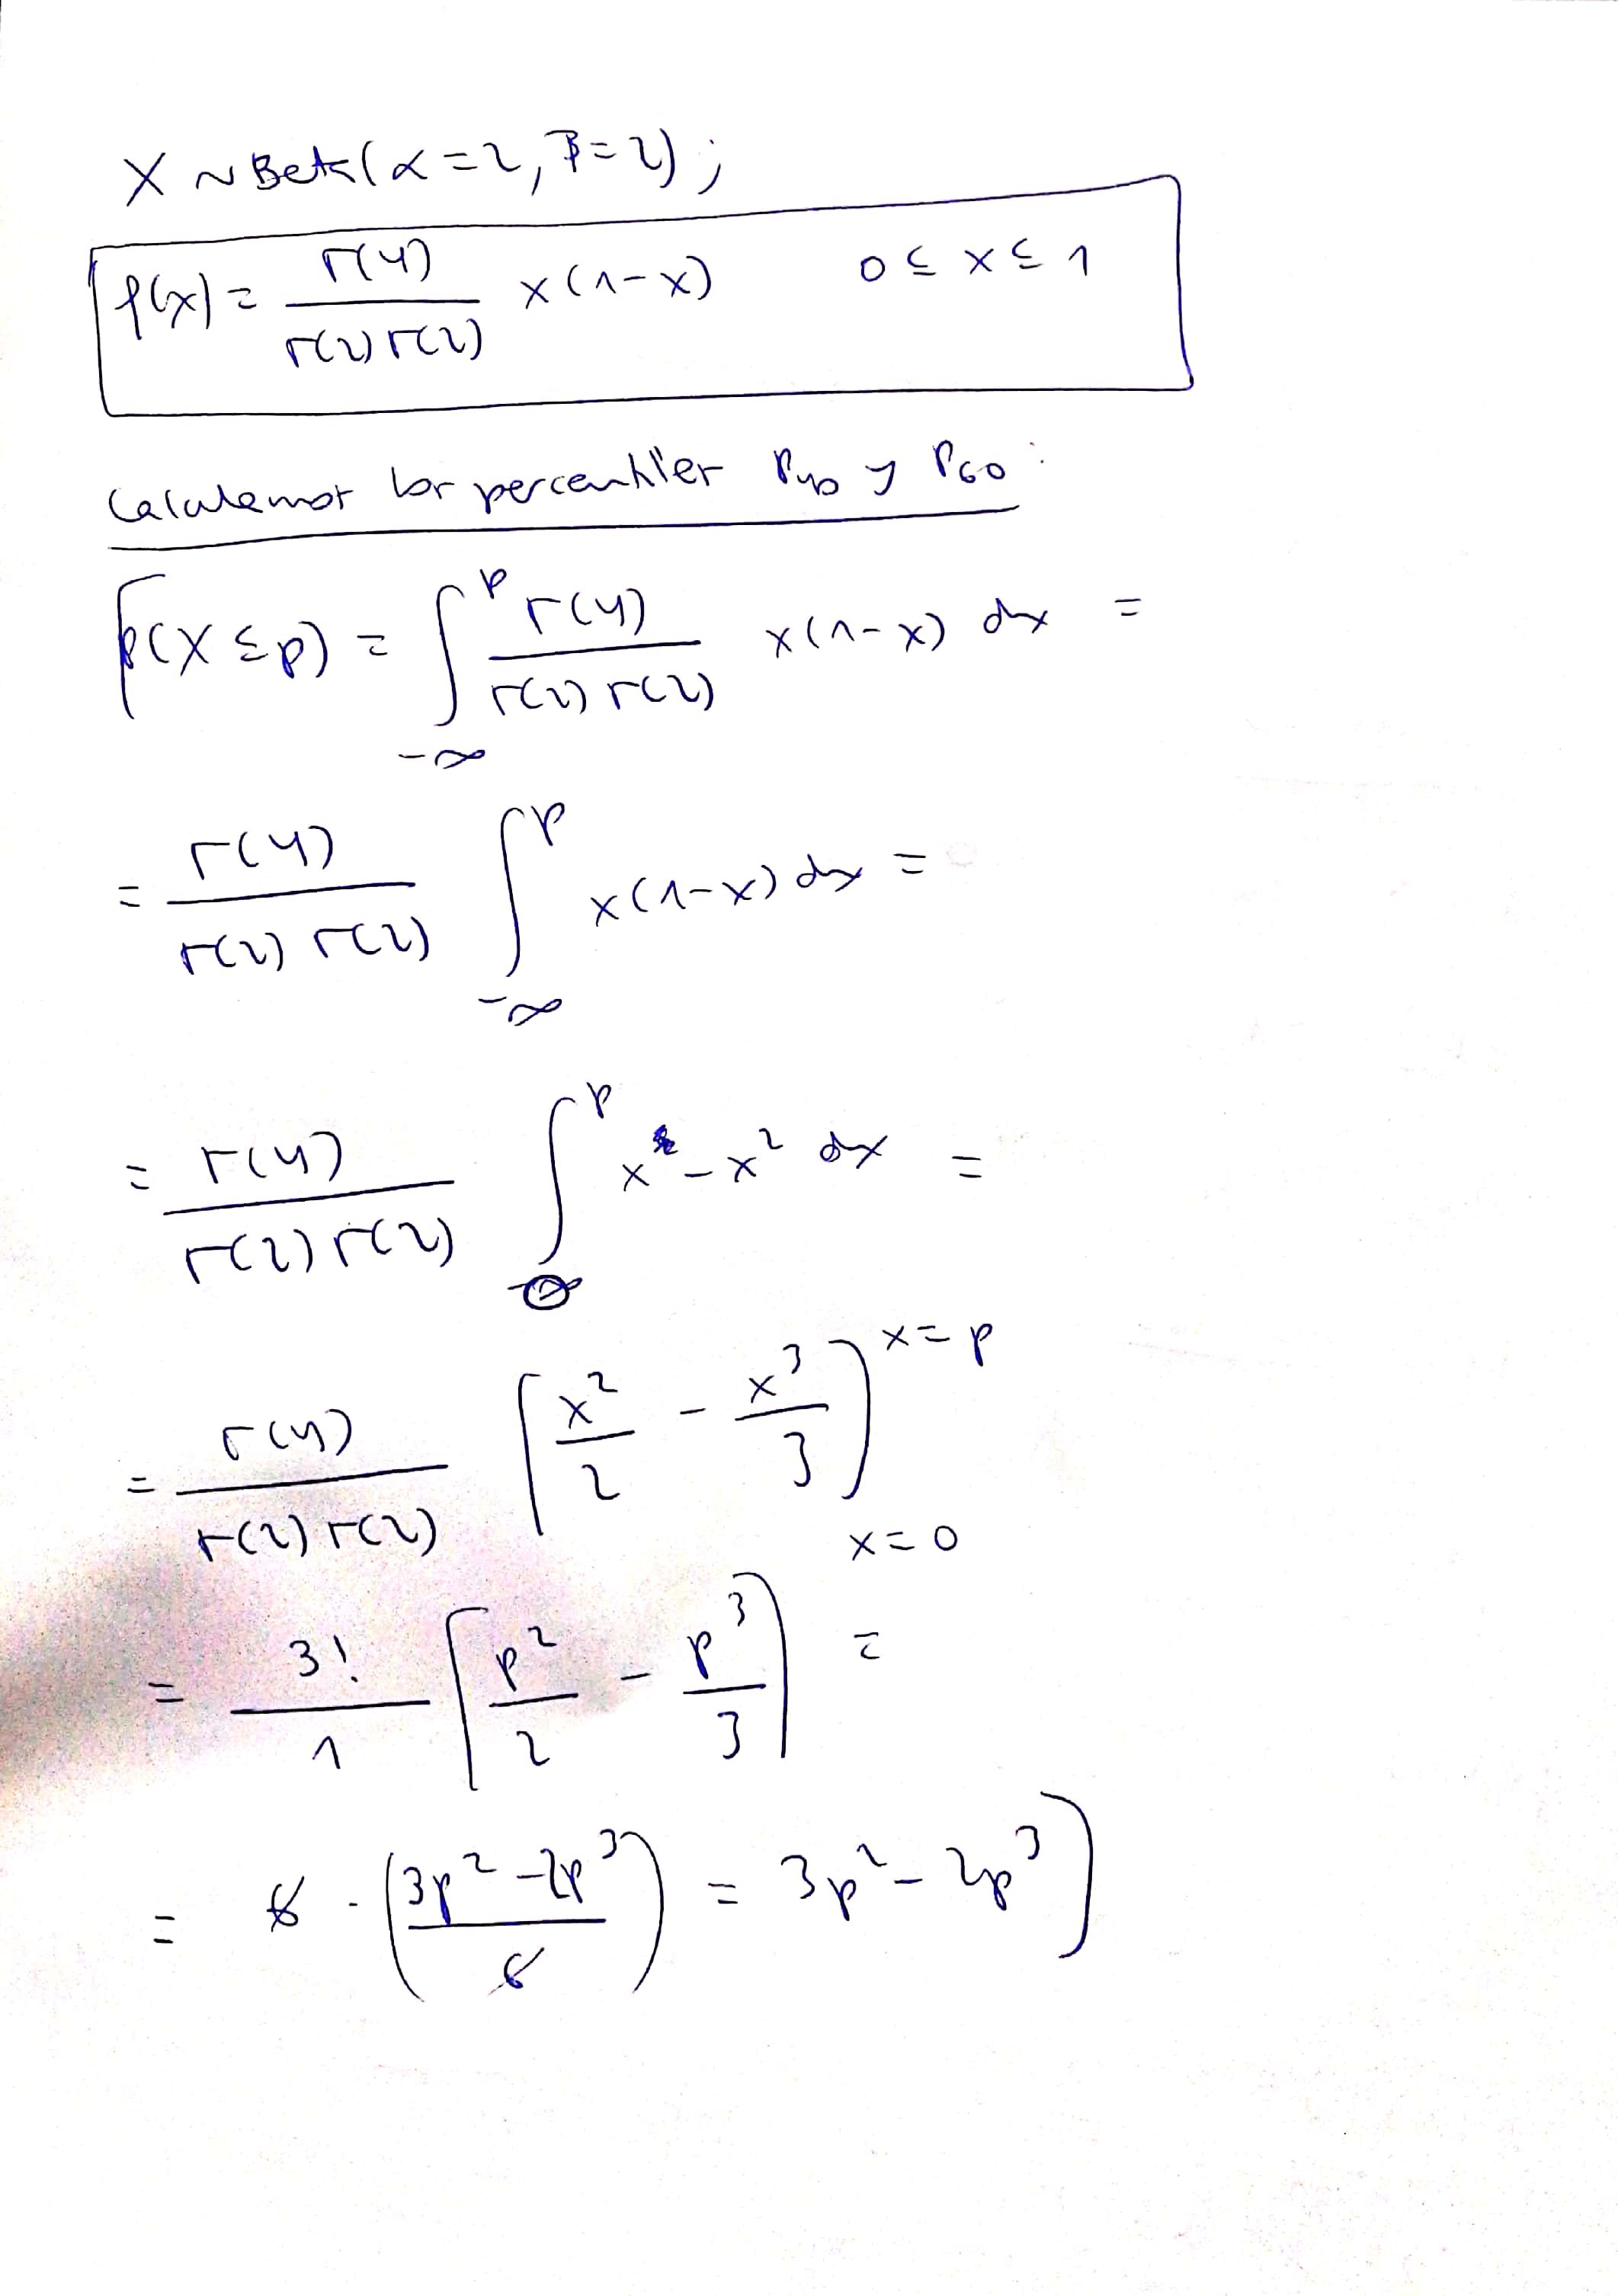 X ~ Beta(α=2, β=2);
f(x) = Γ(4) / Γ(2)Γ(2) x(1-x)   0 ≤ x ≤ 1
Calculemos los percentiles P40 y P60:
P(X ≤ p) = ∫_{-∞}^{p} Γ(4) / Γ(2)Γ(2) x(1-x) dx =
= Γ(4) / Γ(2)Γ(2) ∫_{-∞}^{p} x(1-x) dx =
= Γ(4) / Γ(2)Γ(2) ∫_{0}^{p} x - x² dx =
= Γ(4) / Γ(2)Γ(2) [x²/2 - x³/3]_{x=0}^{x=p}
= 3!/1 [p²/2 - p³/3] =
= 6 · (3p² - 2p³ / 6) = 3p² - 2p³]